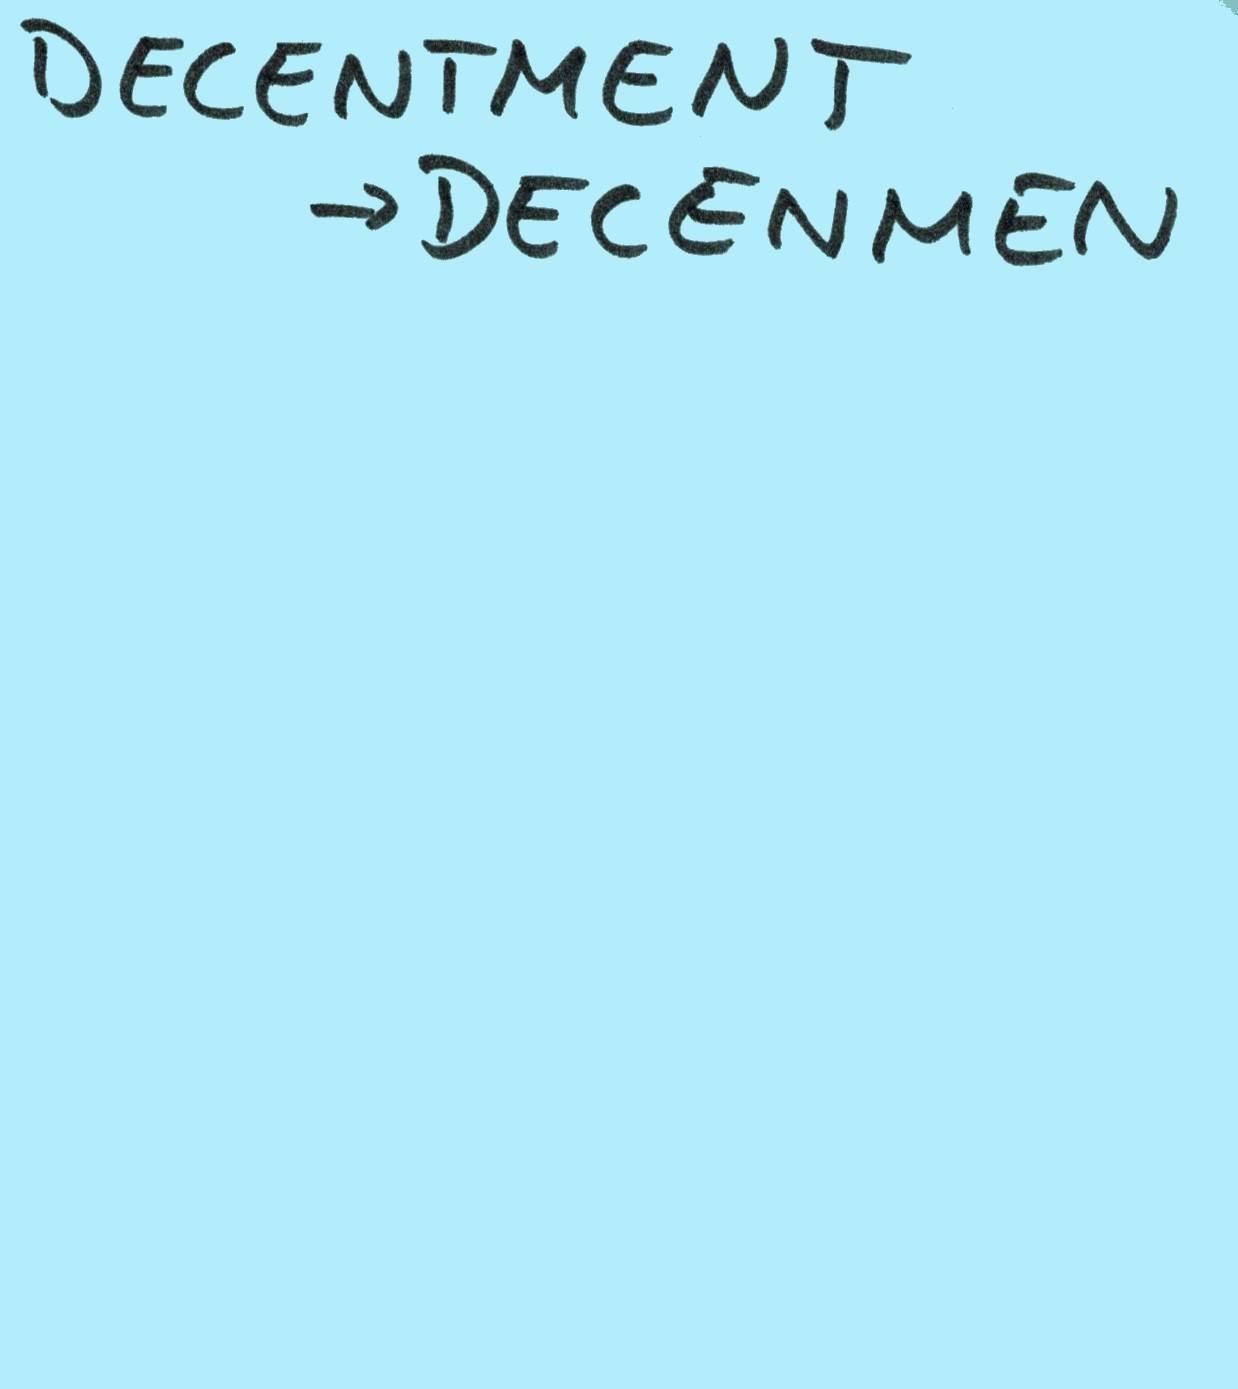 DECENTMENT
→ DECENMEN